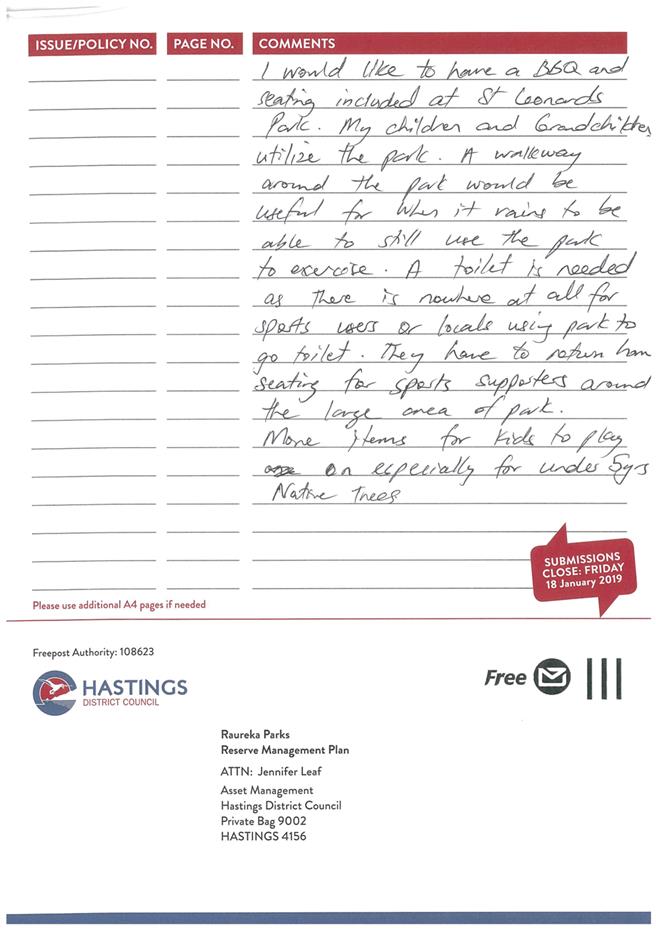 ISSUE/POLICY NO. PAGE NO. COMMENTS
I would like to have a BBQ and
seating included at St Leonards
Park. My children and Grandchildren
utilize the park. A walkway
around the park would be
useful for when it rains to be
able to still use the park
to exercise. A toilet is needed
as there is nowhere at all for
sports users or locals using park to
go toilet. They have to return home
seating for sports supporters around
the large area of park.
More items for kids to play
on especially for under 5yrs
Native Trees
SUBMISSIONS
CLOSE: FRIDAY
18 January 2019
Please use additional A4 pages if needed
Freepost Authority: 108623
HASTINGS
DISTRICT COUNCIL
Free
Raureka Parks
Reserve Management Plan
ATTN: Jennifer Leaf
Asset Management
Hastings District Council
Private Bag 9002
HASTINGS 4156